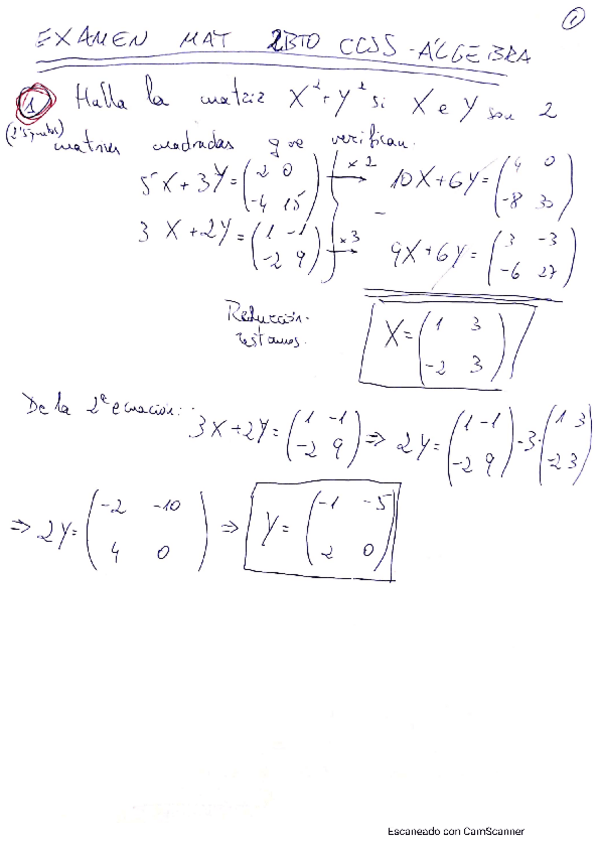 1
EXAMEN MAT 2BTO CCSS - ÁLGEBRA
1 Halla la matriz X² + Y² si X e Y son 2
(2'5 puntos) matrices cuadradas que verifican:
5X + 3Y = (2 0 / -4 15) ×2 → 10X + 6Y = (4 0 / -8 30)
3X + 2Y = (1 -1 / -2 9) ×3 → 9X + 6Y = (3 -3 / -6 27)
Reducción. restamos. X = (1 3 / -2 3)
De la 2ª ecuación: 3X + 2Y = (1 -1 / -2 9) ⇒ 2Y = (1 -1 / -2 9) - 3·(1 3 / -2 3)
⇒ 2Y = (-2 -10 / 4 0) ⇒ Y = (-1 -5 / 2 0)
Escaneado con CamScanner